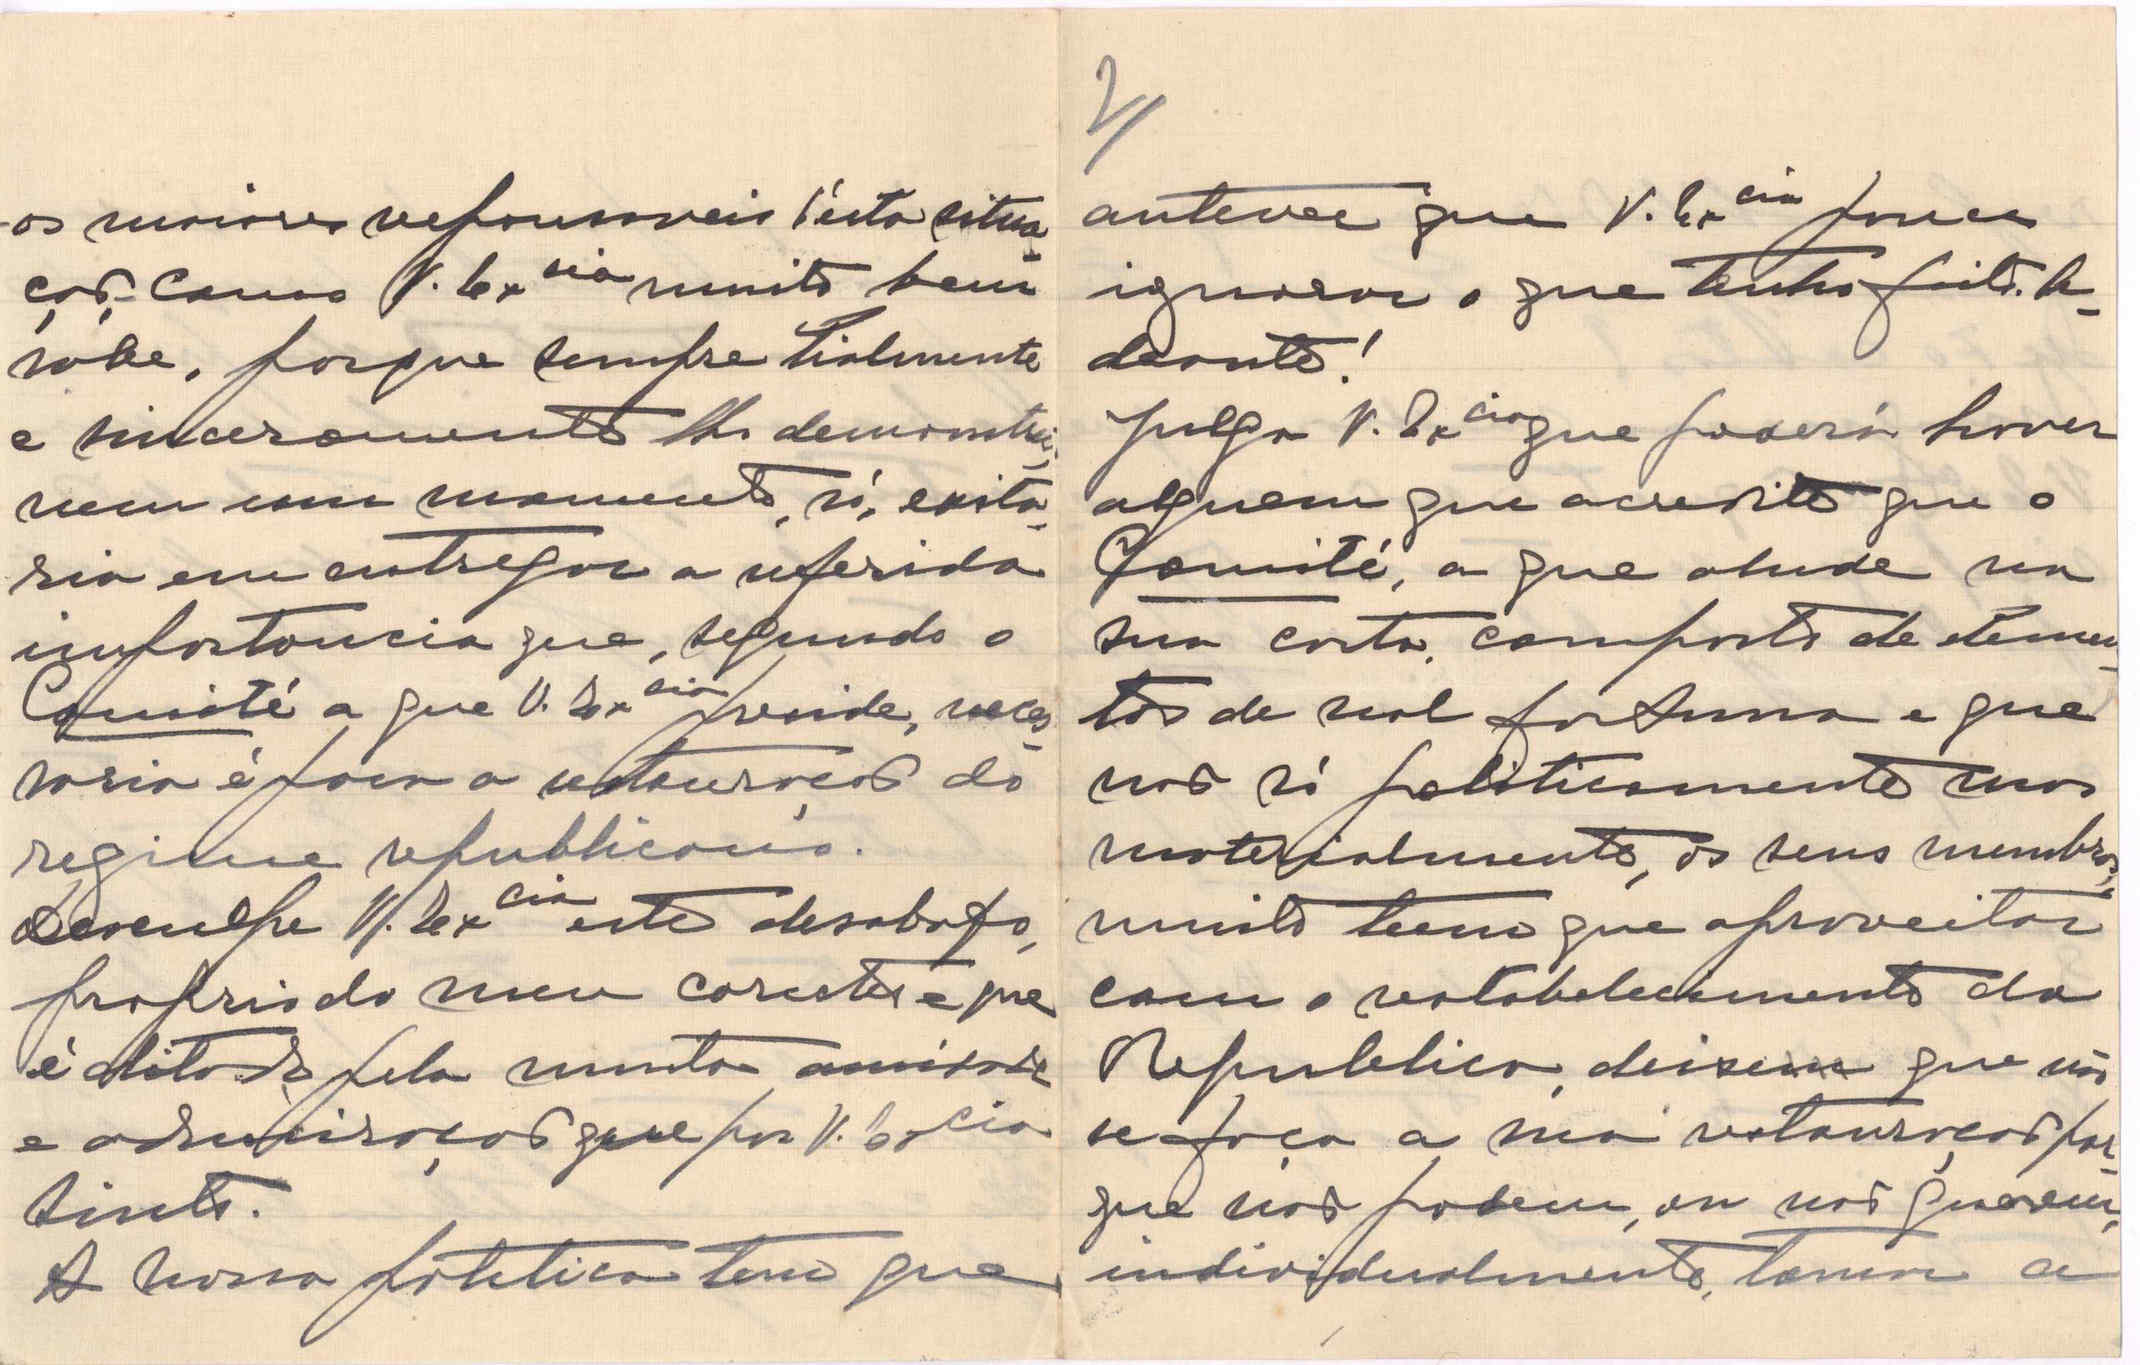 os maiores responsaveis d'esta situa-
ção. Como V. Ex cia muito bem
sabe, porque sempre lialmente
e sinceramente lh'o demonstrei,
nem um momento, só, exita-
ria em entregar a referida
importancia que, segundo o
Comité a que V. Ex cia preside, neces-
saria é para a restauração do
regime republicano.
Desculpe V. Ex cia este desabafo,
proprio do meu caracter e que
é ditado pela muita amisade
e admiração que por V. Ex cia
sinto.
A nossa politica tem que
2/
antever que V. Ex cia
ignorar o que tenho feito. A-
deante!
Julga V. Ex cia que poderá haver
alguem que acredite que o
Comité, a que alude na
sua carta, composto de elemen-
tos de real fortuna e que
não só politicamente mas
materialmente, os seus membros,
muito teem que aproveitar
com o restabelecimento da
Republica, deixem que não
se faça a sua restauração por-
que não podem, ou não querem,
individualmente, tomar a